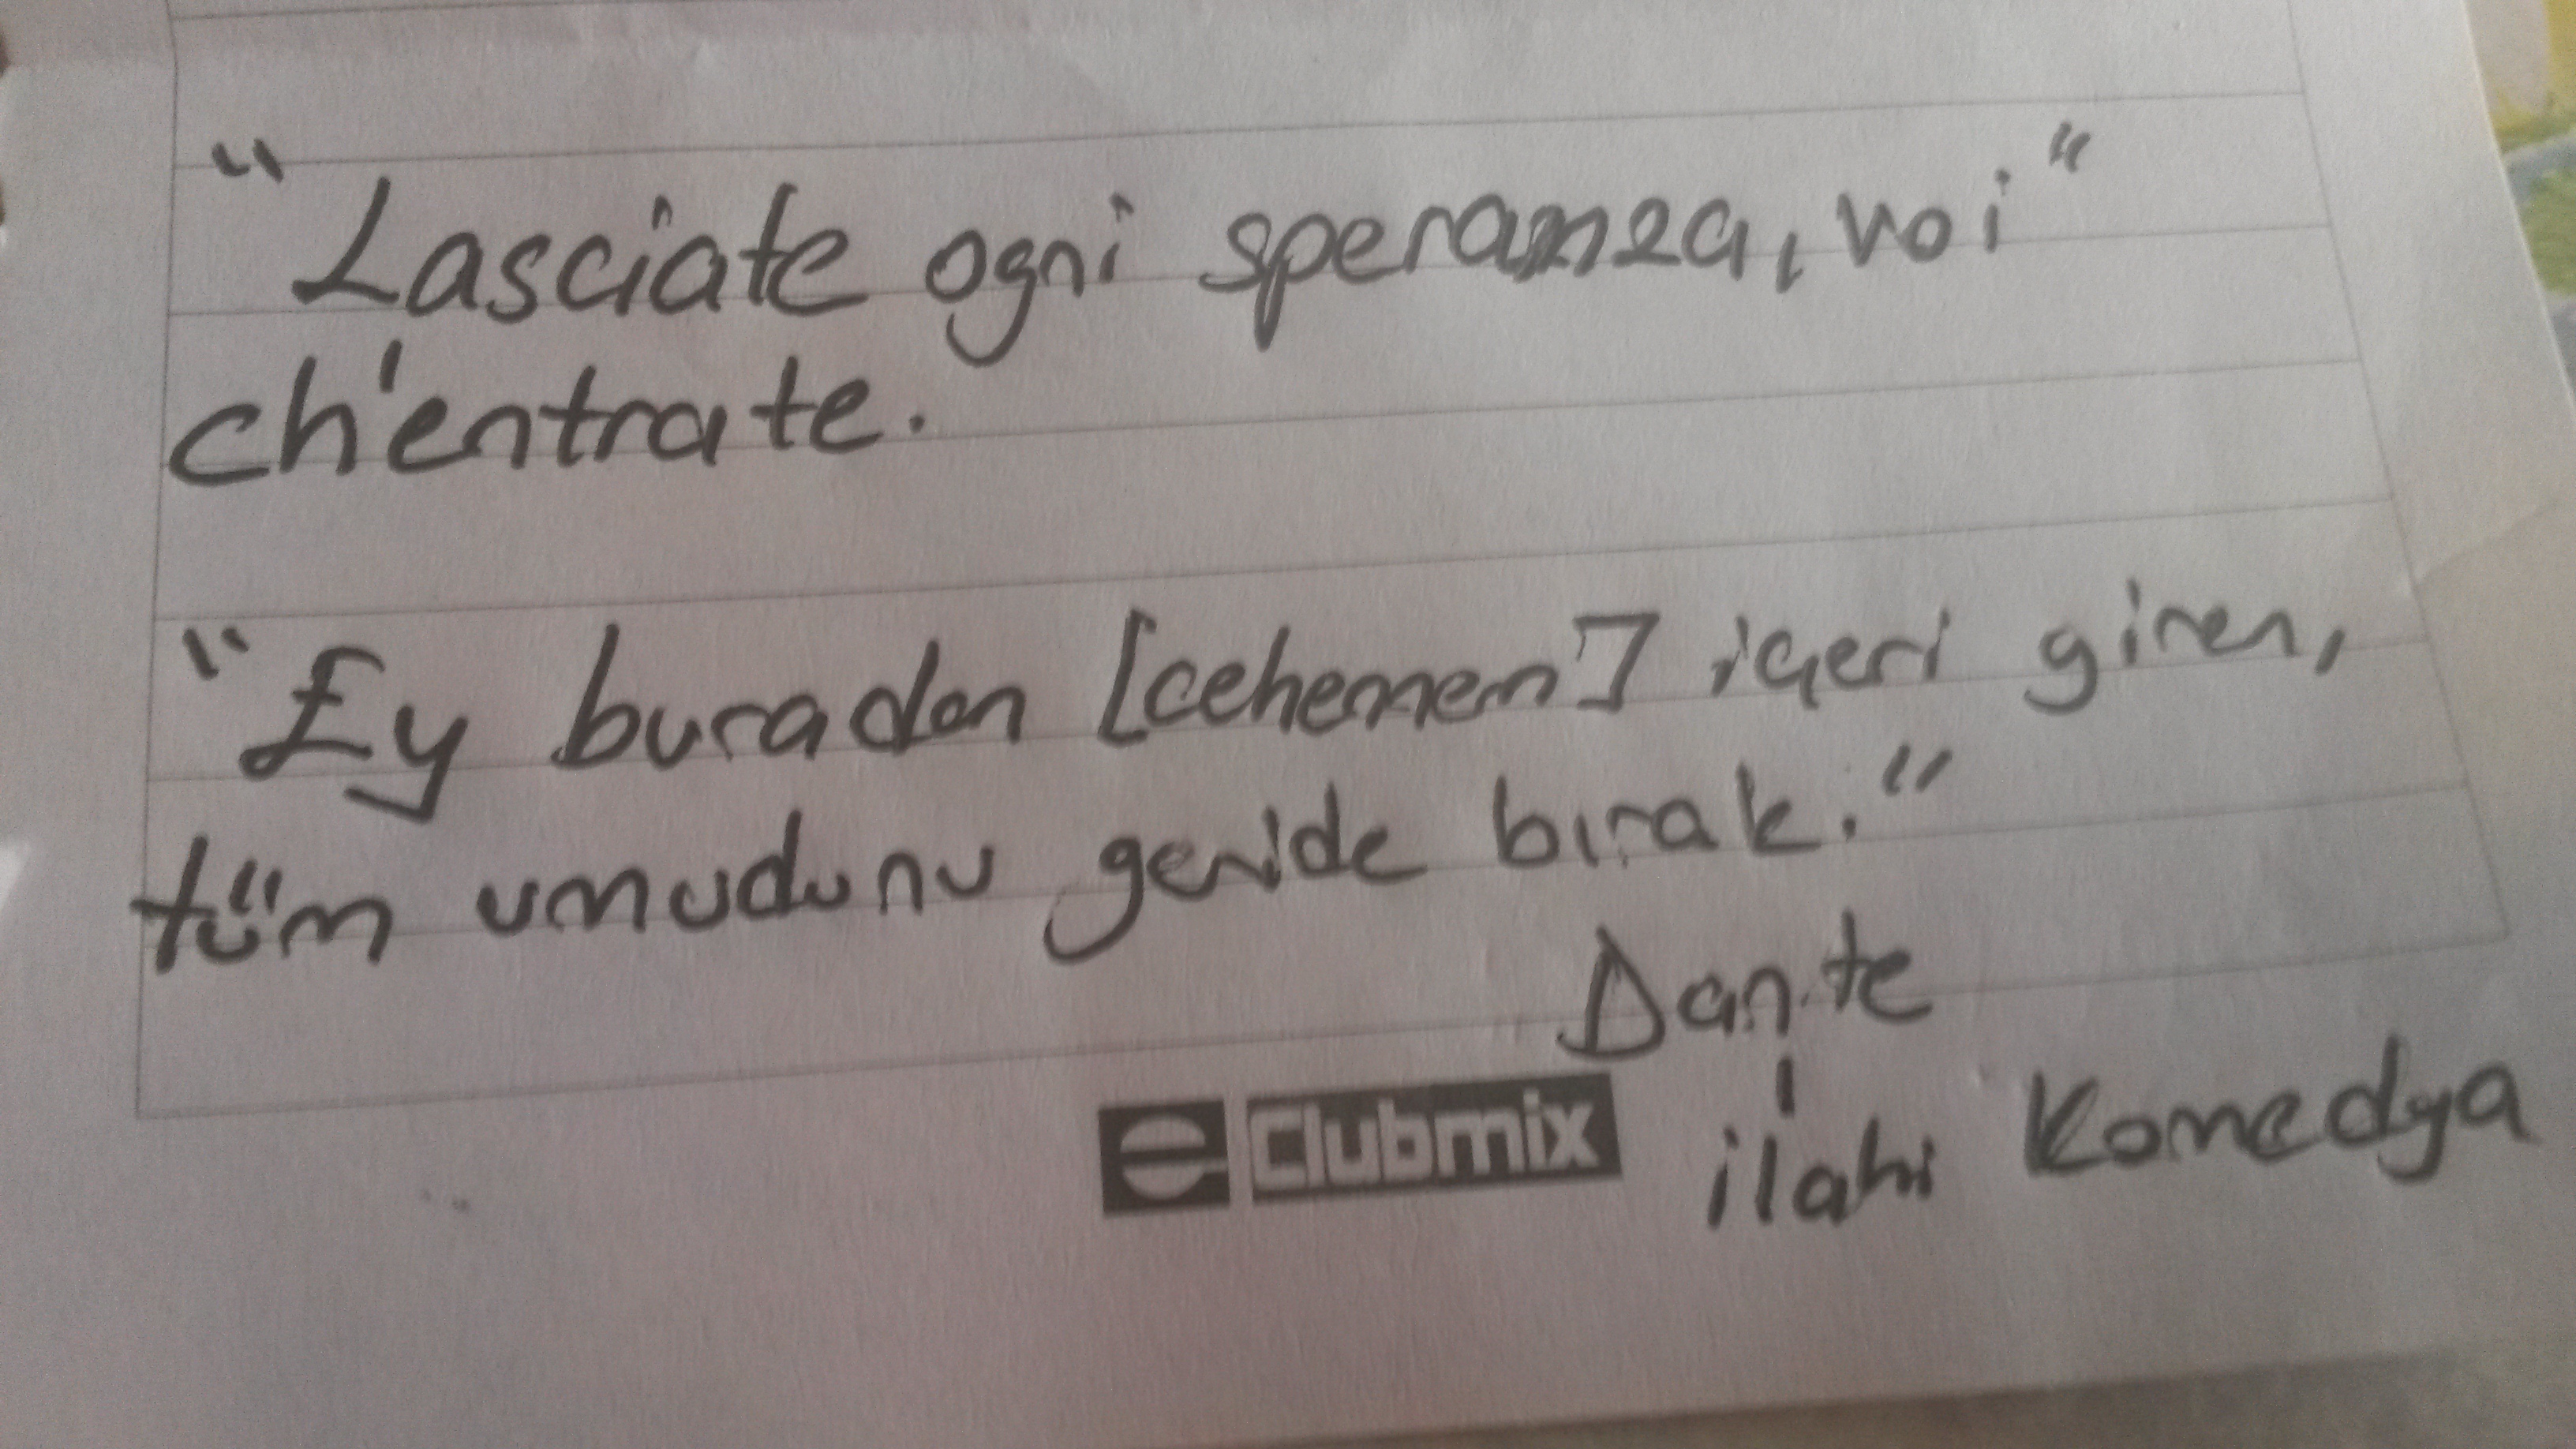 "Lasciate ogni speranza, voi"
ch'entrate.
"Ey buradan [cehennem] içeri giren,
tüm umudunu geride bırak."
Dante
ilahi Komedya
e Clubmix